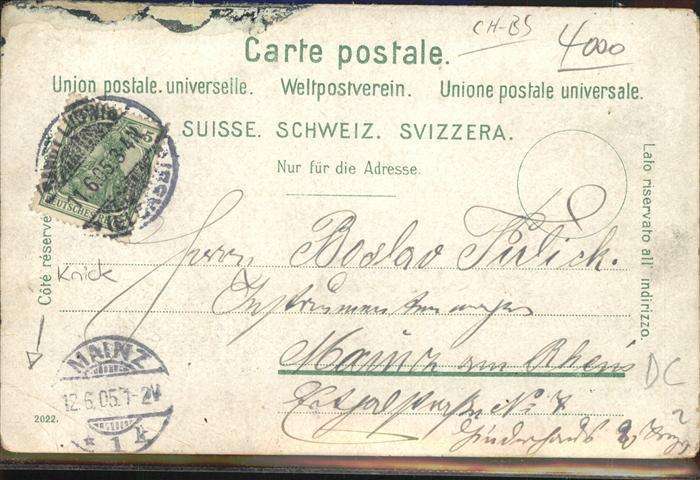 CH-BS
4000
Carte postale.
Union postale universelle. Weltpostverein. Unione postale universale.
SUISSE. SCHWEIZ. SVIZZERA.
Nur für die Adresse.
Côté réservé
Lato riservato all' indirizzo.
DEUTSCHES
6.05.3-4N
Knick
Herrn
Instrumentenmacher
Mainz am Rhein
DC
MAINZ
12.6.05.1-2V
* 1 k
2022.
Hinterhaus 2